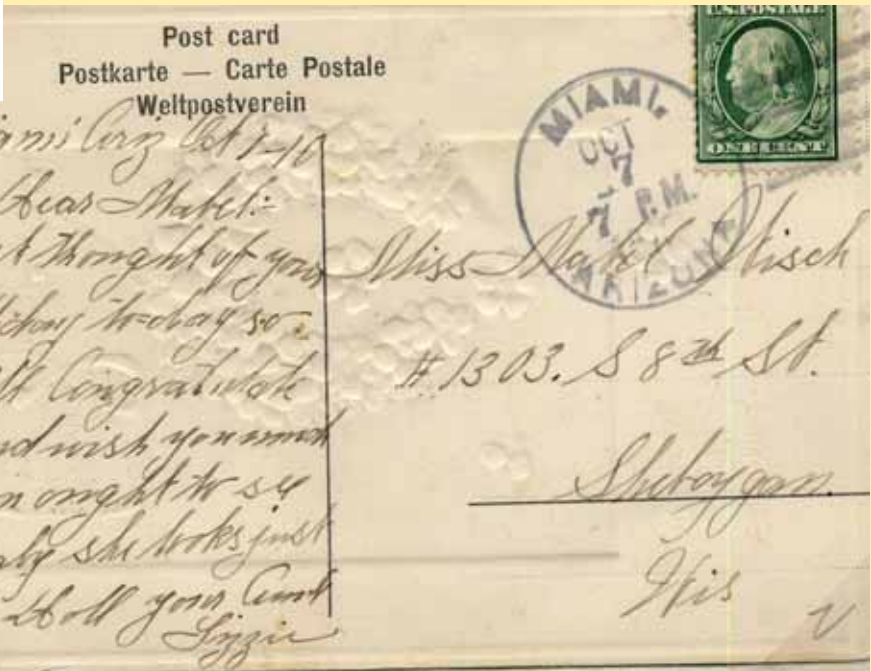 Post card
Postkarte — Carte Postale
Weltpostverein
U.S. POSTAGE
ONE CENT
MIAMI,
OCT
7
7 P.M.
ARIZONA
Oct 7-10
Dear Mabel:-
thought of your
to-day so
Congratulate
wish you much
ought to see
she looks just
Doll your Aunt
Lizzie
Miss Mabel
# 1303. S 8th St.
Sheboygan.
Wis